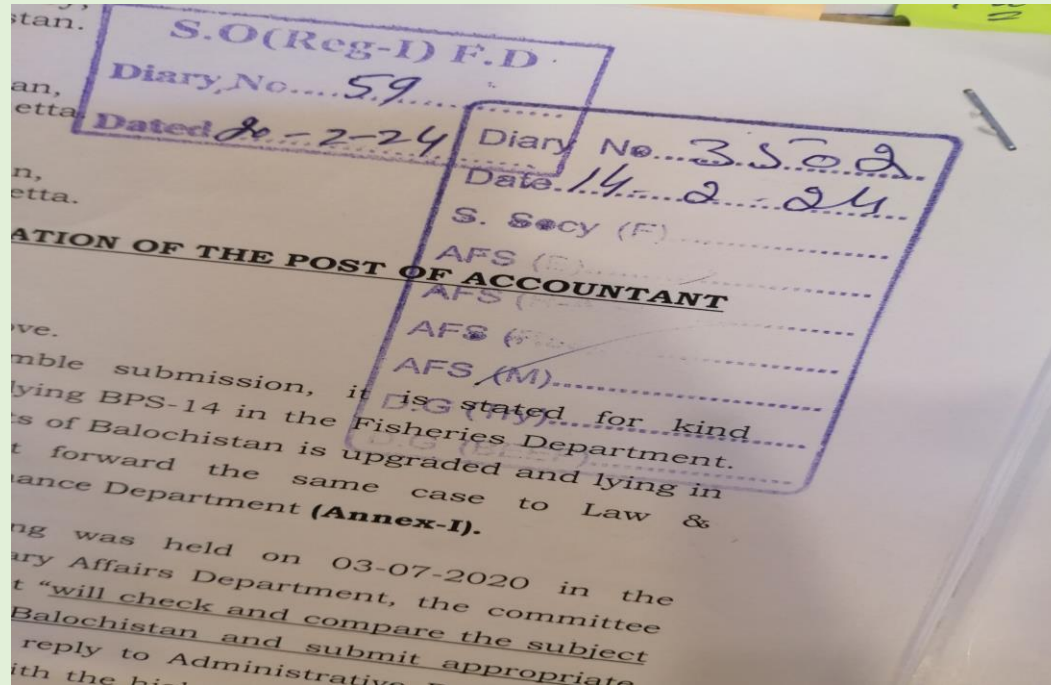 stan.
S.O(Reg-I) F.D
Diary No....59
Dated 20-2-24
an,
etta
Diary No...3502
Date.14-2-24
S. Secy (F)
AFS (E)
AFS
AFS
AFS (M)
D.G (Try)
D.G
n,
etta.
ATION OF THE POST OF ACCOUNTANT
ove.
mble submission, it is stated for kind
lying BPS-14 in the Fisheries Department.
ts of Balochistan is upgraded and lying in
t forward the same case to Law &
nance Department (Annex-I).
ng was held on 03-07-2020 in the
ary Affairs Department, the committee
t "will check and compare the subject
Balochistan and submit appropriate
reply to Administrative
ith the